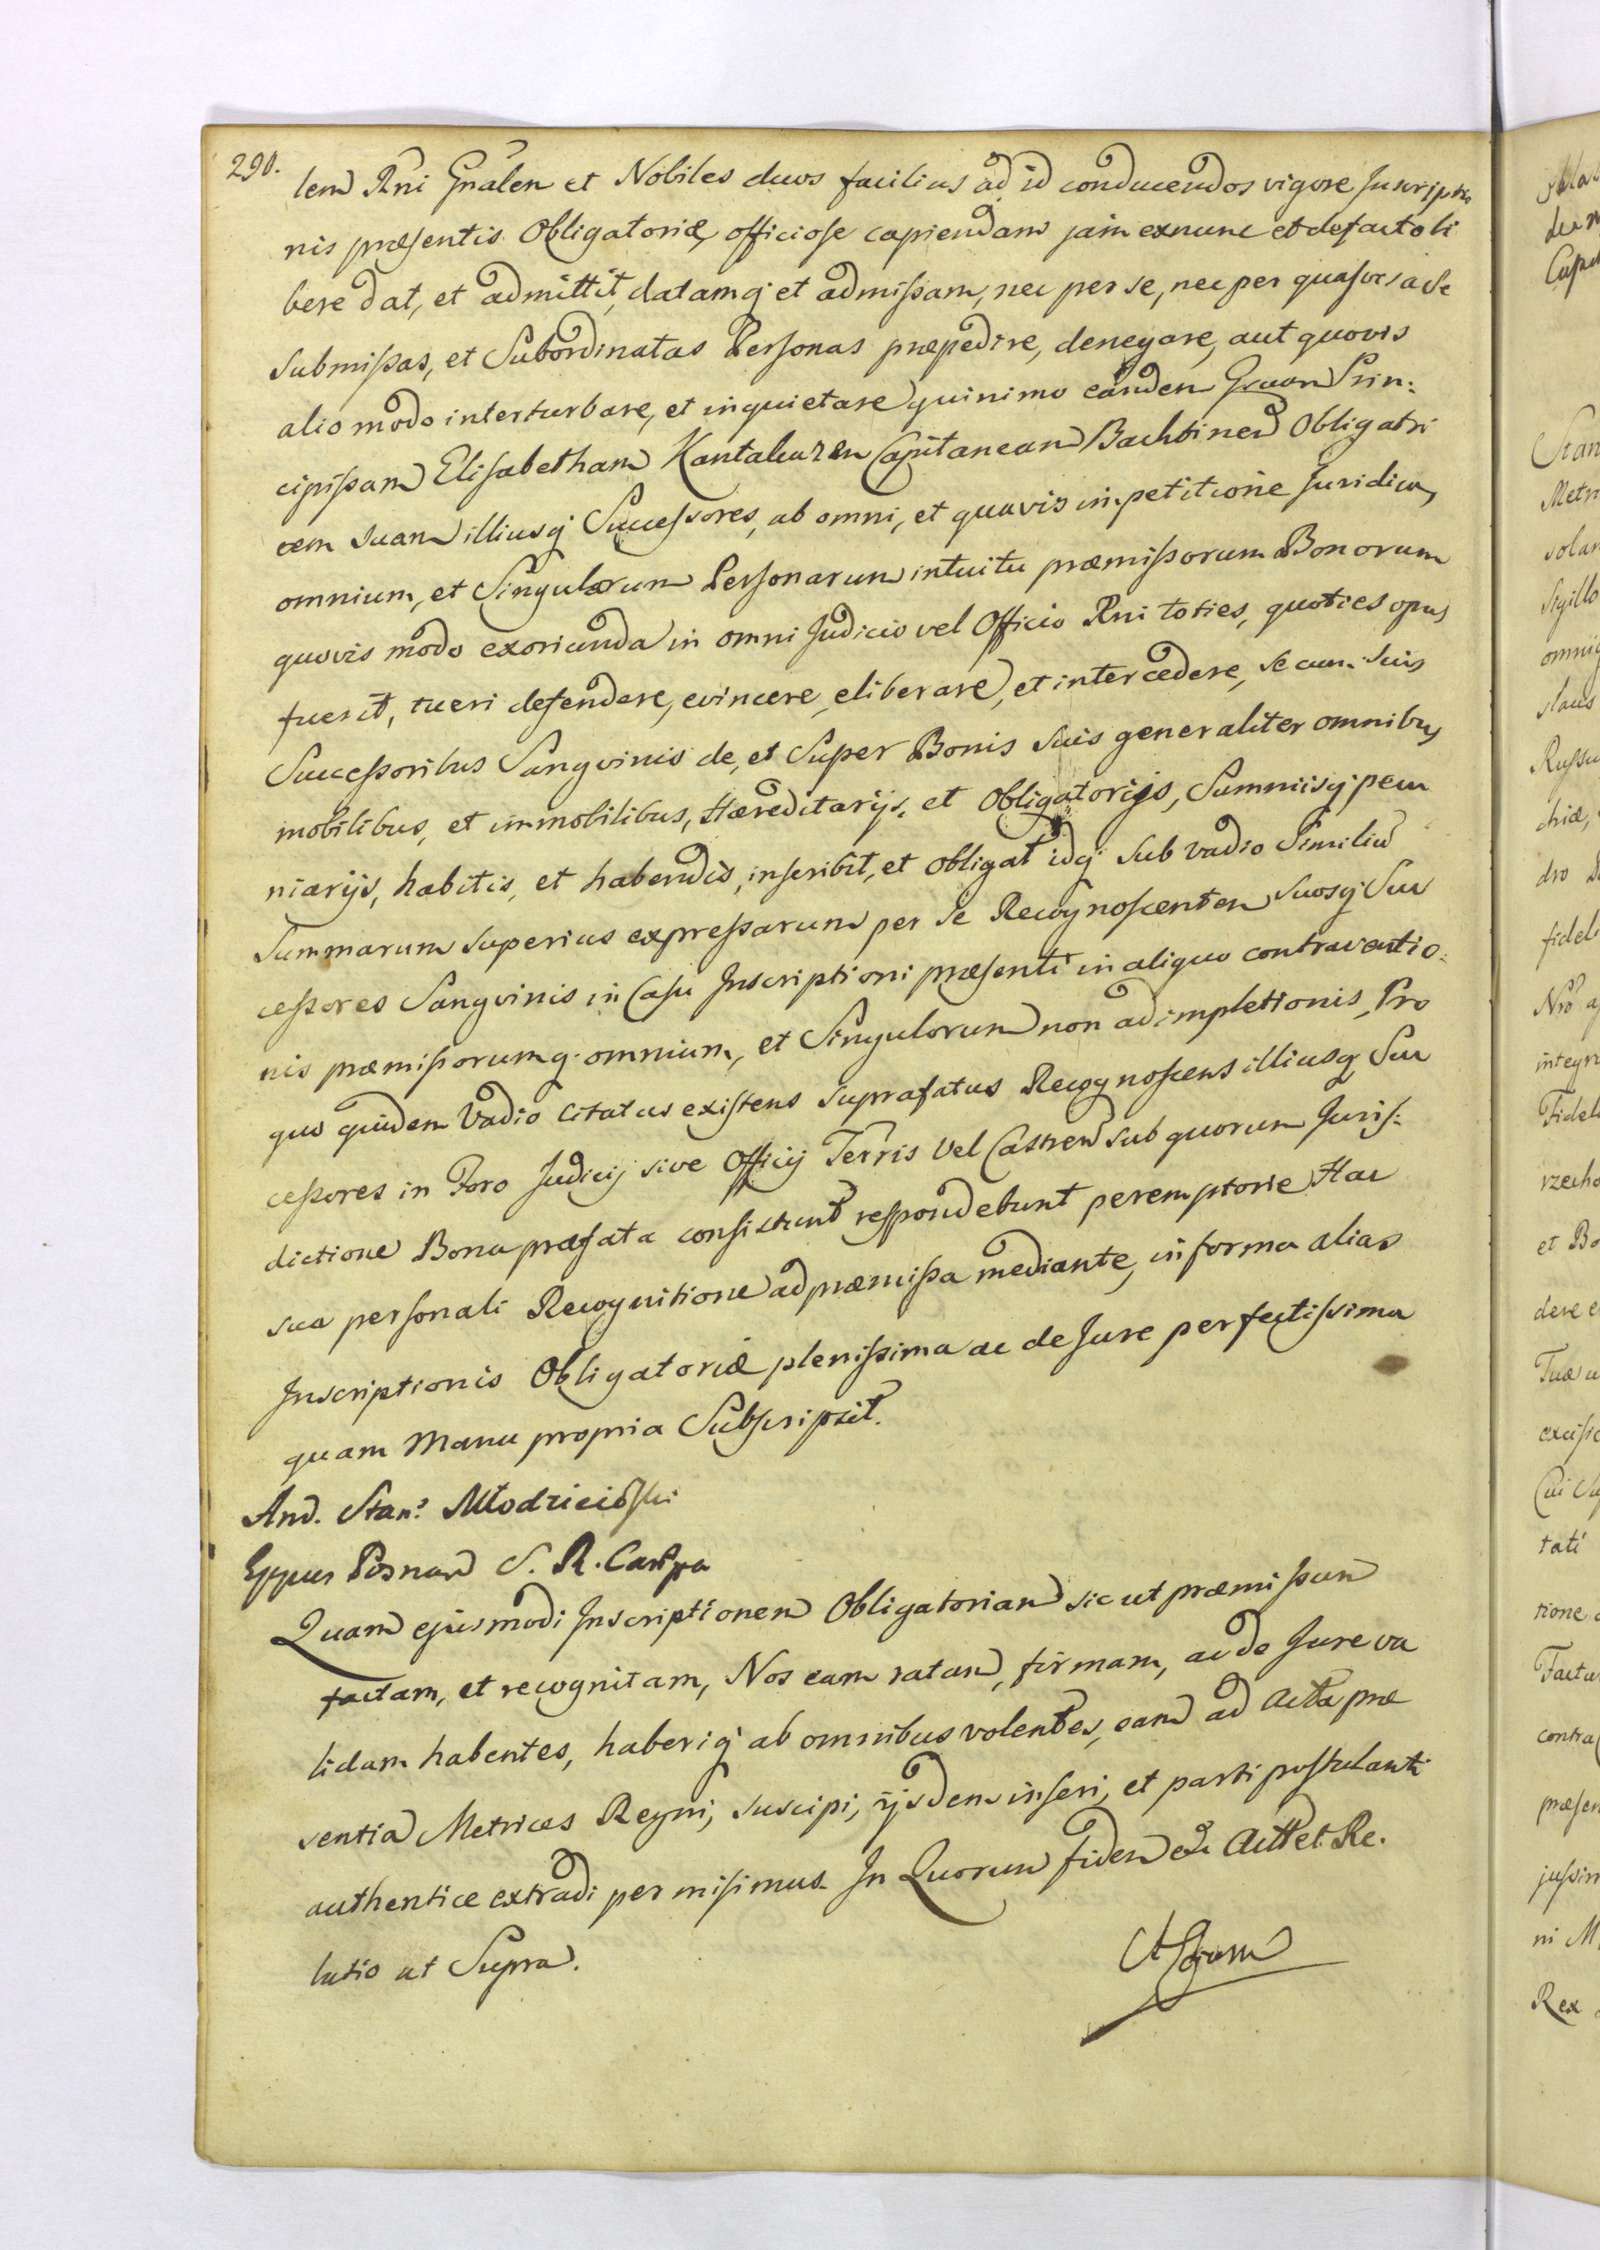 290.
lem Rni Gnalem et Nobiles duos facilius ad id conducendos vigore Inscriptio
nis præsentis Obligatoriæ officiose capiendam jam exnunc et defacto li
bere dat, et admittit, datamq; et admissam, nec per se, nec per quasvis a se
submissas, et Subordinatas Personas præpedire, denegare, aut quovis
alio modo interturbare, et inquietare quinimo eandem Prin:
cipissam Elisabetham Kantakuzen Capitaneam Bachtinen Obligatri
cem suam illiusq; Successores, ab omni, et quavis impetitione Juridica,
omnium, et Singularum Personarum intuitu præmissorum Bonorum
quovis modo exoriunda in omni Judicio vel Officio Rni toties, quoties opus
fuerit, tueri defendere, evincere, eliberare, et intercedere, se cum suis
Successoribus Sangvinis de, et Super Bonis suis generaliter omnibus
mobilibus, et immobilibus, Hæreditarijs, et Obligatorijs, Summiisq; pecu
niarijs, habitis, et habendis, inscribit, et obligat idq; sub vadio Similiu
Summarum superius expressarum per se Recognoscentem suosq; Suc
cessores Sangvinis in Casu Inscriptioni præsenti in aliquo contraventio:
nis præmissorumq; omnium, et Singulorum non adimpletionis, Pro
quo quidem Vadio citatus existens suprafatus Recognoscens illiusq; Suc
cessores in Foro Judicij sive Officij Terris vel Castren sub quorum Juris:
dictione Bona præfata consistunt respondebunt peremptorie Hac
sua personali Recognitione ad præmissa mediante, in forma alias
Inscriptionis Obligatoriæ plenissima ac de Jure perfectissima
quam Manu propria Subscripsit.
And. Stan: Młodzieiowski
Eppus Posnan S. R. Can
Quam ejusmodi Inscriptionem Obligatoriam sic ut præmissum
factam, et recognitam, Nos eam ratam, firmam, ac de Jure va
lidam habentes, haberiq; ab omnibus volentes, eam ad Acta præ
sentia Metrices Regni, suscipi, ijsdem inseri, et parti postulanti
authentice extradi permisimus. In Quorum fidem & Actt et Re.
latio ut Supra.